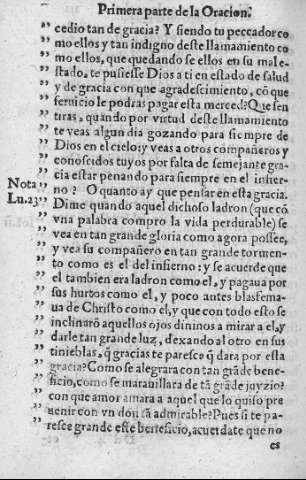 Primera parte de la Oracion.
” cedio tan de gracia? Y siendo tu peccador co
” mo ellos y tan indigno deste llamamiento co
” mo ellos, que quedando se ellos en su male-
” stado, te pusiesse Dios a ti en estado de salud
” y de gracia con que agradescimiento, cō que
” seruicio le podras pagar esta merced? Que sen
” tiras, quando por virtud deste llamamiento
” te veas algun dia gozando para siempre de
” Dios en el cielo: y veas a otros compañeros y
” conoscidos tuyos por falta de semejante gra-
” cia estar penando para siempre en el infier-
Nota ” no? O quanto ay que pensar en esta gracia.
Lu.23 ” Dime quando aquel dichoso ladron (que cō
” vna palabra compro la vida perdurable) se
” vea en tan grande gloria como agora possee,
” y vea su compañero en tan grande tormen-
” to como es el del infierno: y se acuerde que
” el tambien era ladron como el, y pagaua por
” sus hurtos como el, y poco antes blasfema-
” ua de Christo como el, y que con todo esto se
” inclinarō aquellos ojos diuinos a mirar a el, y
” darle tan grande luz, dexando al otro en sus
” tinieblas, q̃ gracias te paresce q̃ dara por esta
” gracia? Como se alegrara con tan grāde bene-
” ficio, como se marauillara de tā grāde juyzio?
” con que amor amara a aquel que lo quiso pre
” uenir con vn don tā admirable? Pues si te pa-
” resce grande este beneficio, acuerdate que no
es